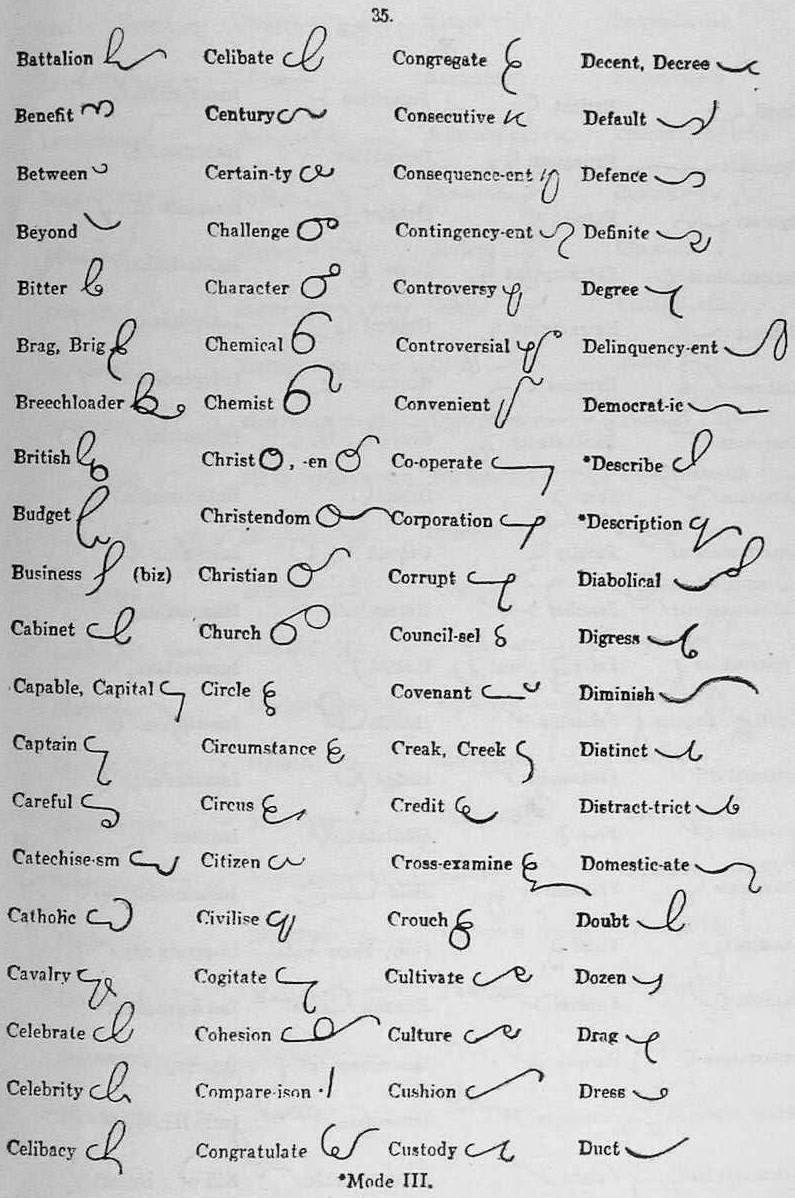 35.
Battalion Celibate Congregate Decent, Decree
Benefit Century Consecutive Default
Between Certain-ty Consequence-ent Defence
Beyond Challenge Contingency-ent Definite
Bitter Character Controversy Degree
Brag, Brig Chemical Controversial Delinquency-ent
Breechloader Chemist Convenient Democrat-ic
British Christ , -en Co-operate *Describe
Budget Christendom Corporation *Description
Business (biz) Christian Corrupt Diabolical
Cabinet Church Council-sel Digress
Capable, Capital Circle Covenant Diminish
Captain Circumstance Creak, Creek Distinct
Careful Circus Credit Distract-trict
Catechise-sm Citizen Cross-examine Domestic-ate
Catholic Civilise Crouch Doubt
Cavalry Cogitate Cultivate Dozen
Celebrate Cohesion Culture Drag
Celebrity Compare-ison Cushion Dress
Celibacy Congratulate Custody Duct
*Mode III.